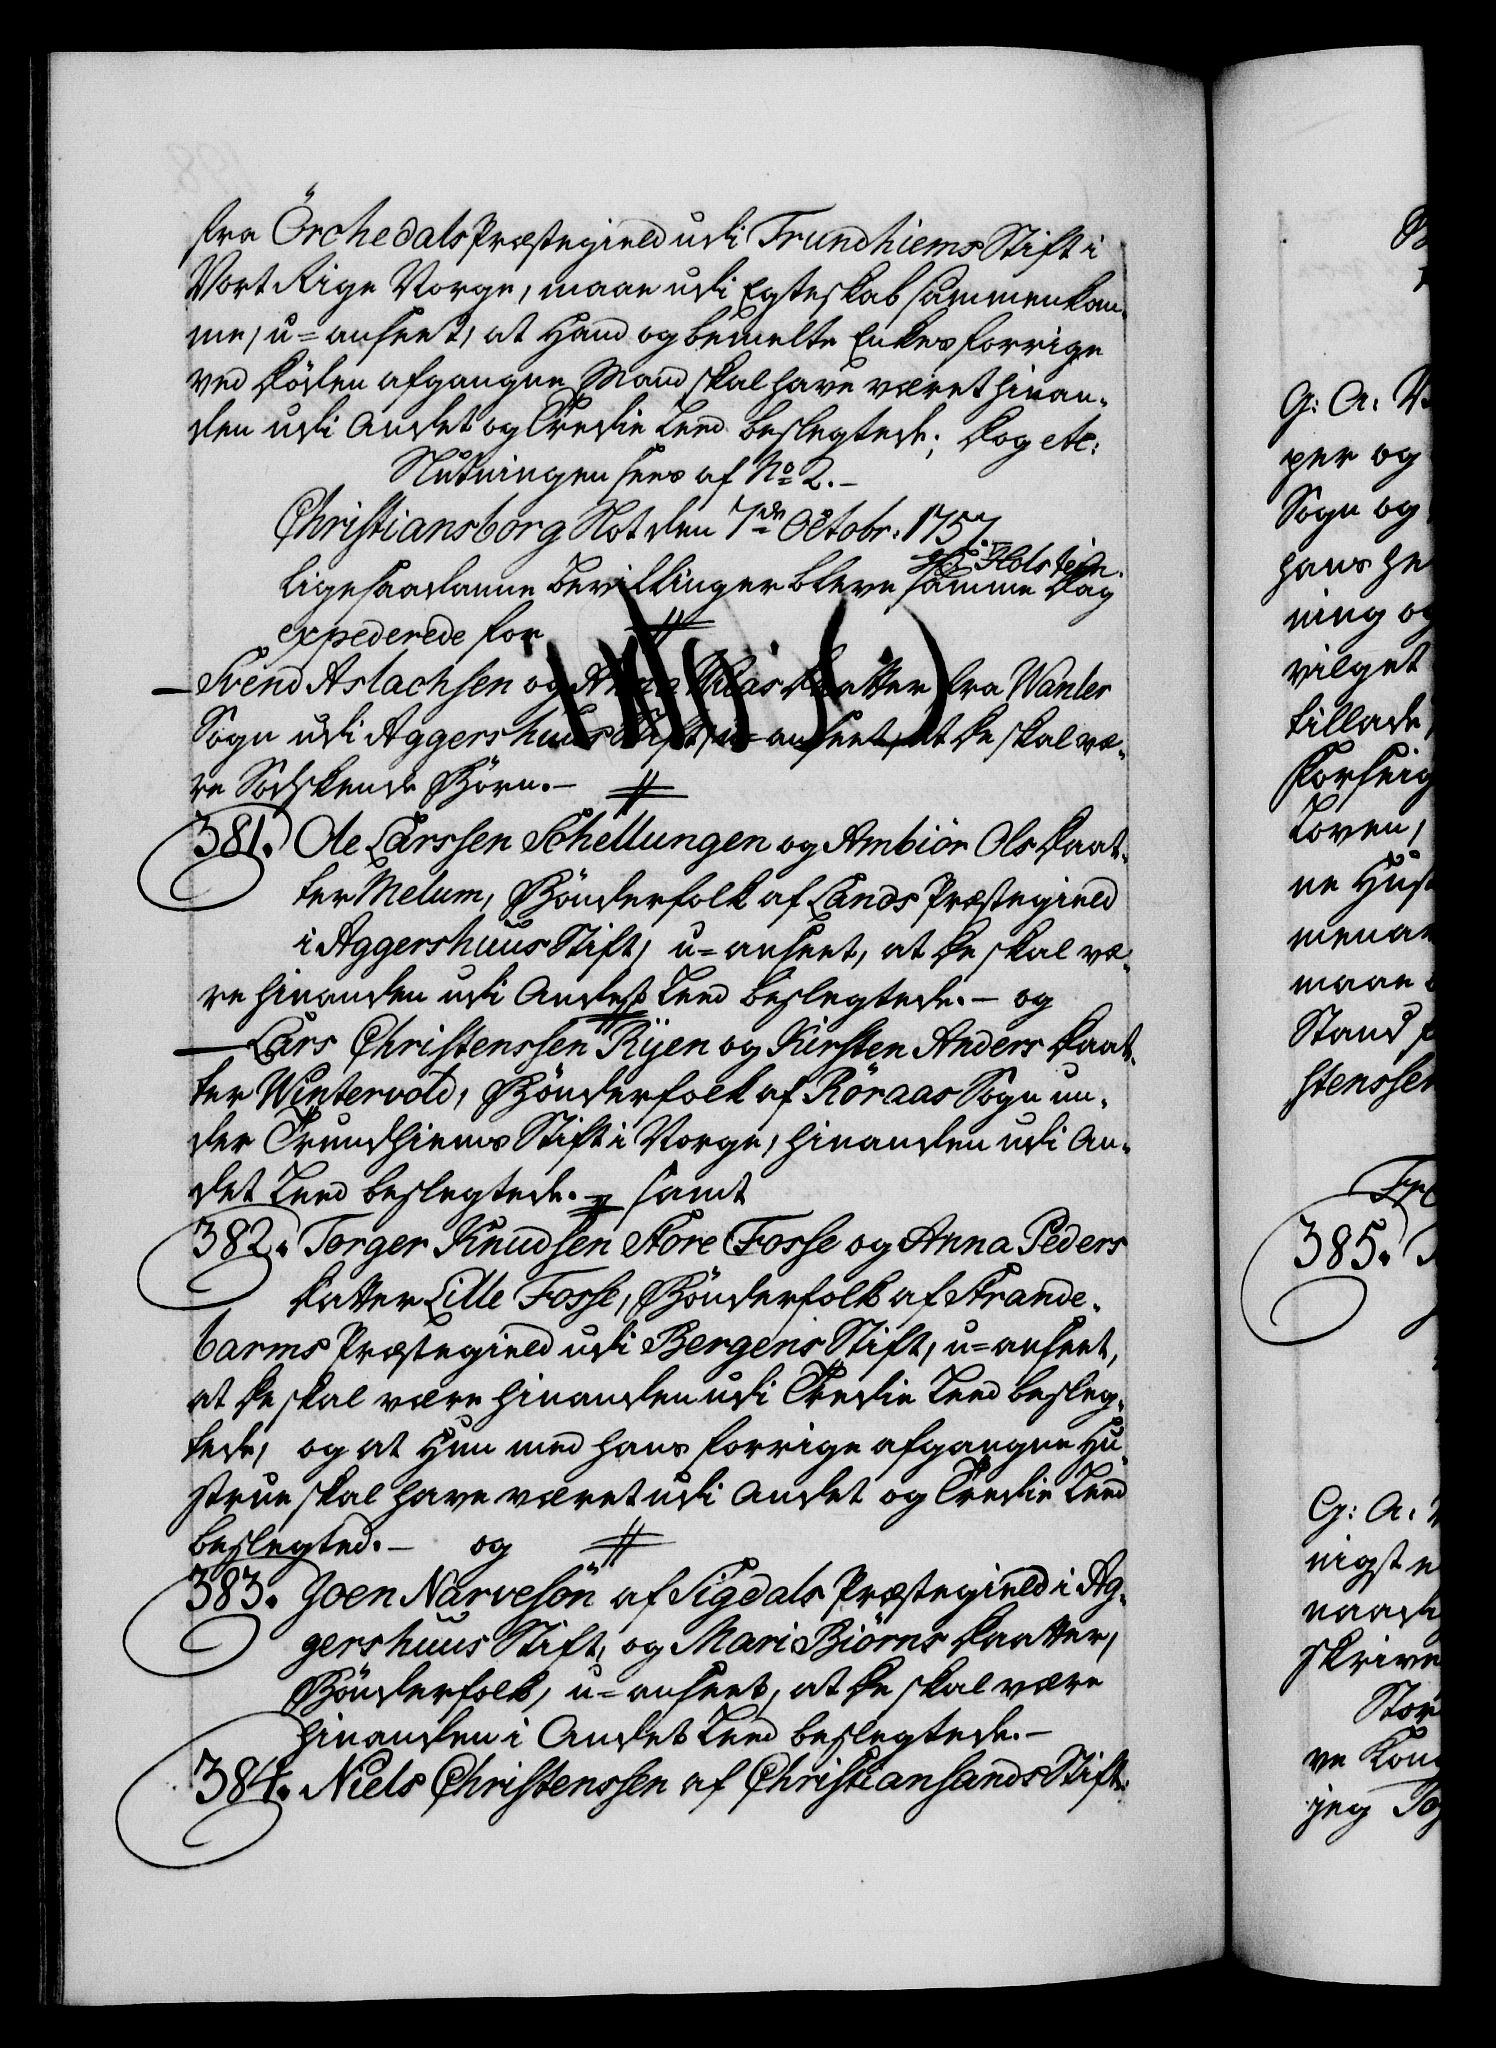 fra Örchedals Præstegield udi Trundhiems Stift i
Vort Rige Norge, maae udi Egteskab sammenkom-
me, u-anseet, at Hand og bemelte Enkes forrige
ved Döden afgangne Mand skal have været hinan-
den udi Andet og Tredie Leed beslegtede; Dog etc:
Slutningen sees af No 2.-
Christiansborg Slot den 7de Octobr: 1757.
Holstein.
Lige saadanne Bevillinger bleve samme Dag
expederede for
- Svend Aslachsen og Daatter fra
Sogn udi Aggershuus Stift, u-anseet, at De skal væ-
re Sodskende Börn.-
381. Ole Larssen Schellungen og Ambiör Ols Daat-
ter Melum, Bönderfolk af Lands Præstegield
i Aggershuus Stift, u-anseet, at De skal væ-
re hinanden udi Andet Leed beslegtede.- og
- Lars Christenssen Rÿen og Kirsten Anders Daat-
ter Wintervold, Bönderfolk af Röraas Sogn un-
der Trundhiems Stift i Norge, hinanden udi An-
det Leed beslegtede.- samt
382. Torger Knudsen Store Fosse og Anna Peders
Datter Lille Fosse, Bönderfolk af Strande-
barms Præstegield udi Bergens Stift, u-anseet,
at De skal være hinanden udi Tredie Leed besleg-
tede, og at Hun med hans forrige afgangne Hu-
strue skal have været udi Andet og Tredie Leed
beslegted.- og
383. Joen Narvesön af Sigdals Præstegield i Ag-
gershuus Stift, og Mari Biörns Daatter,
Bönderfolk, u-anseet, at De skal være
hinanden i Andet Leed beslegtede.-
384. Niels Christenssen af Christiansands Stift
G: A: V
per og
Sogn og
hans He
ning og
vilget
tillade,
Loven,
ne Hust
maae
Stand
stenssen
385.
G: A:
nigst
naadi
skrive
Stor
ve Kong
jeg